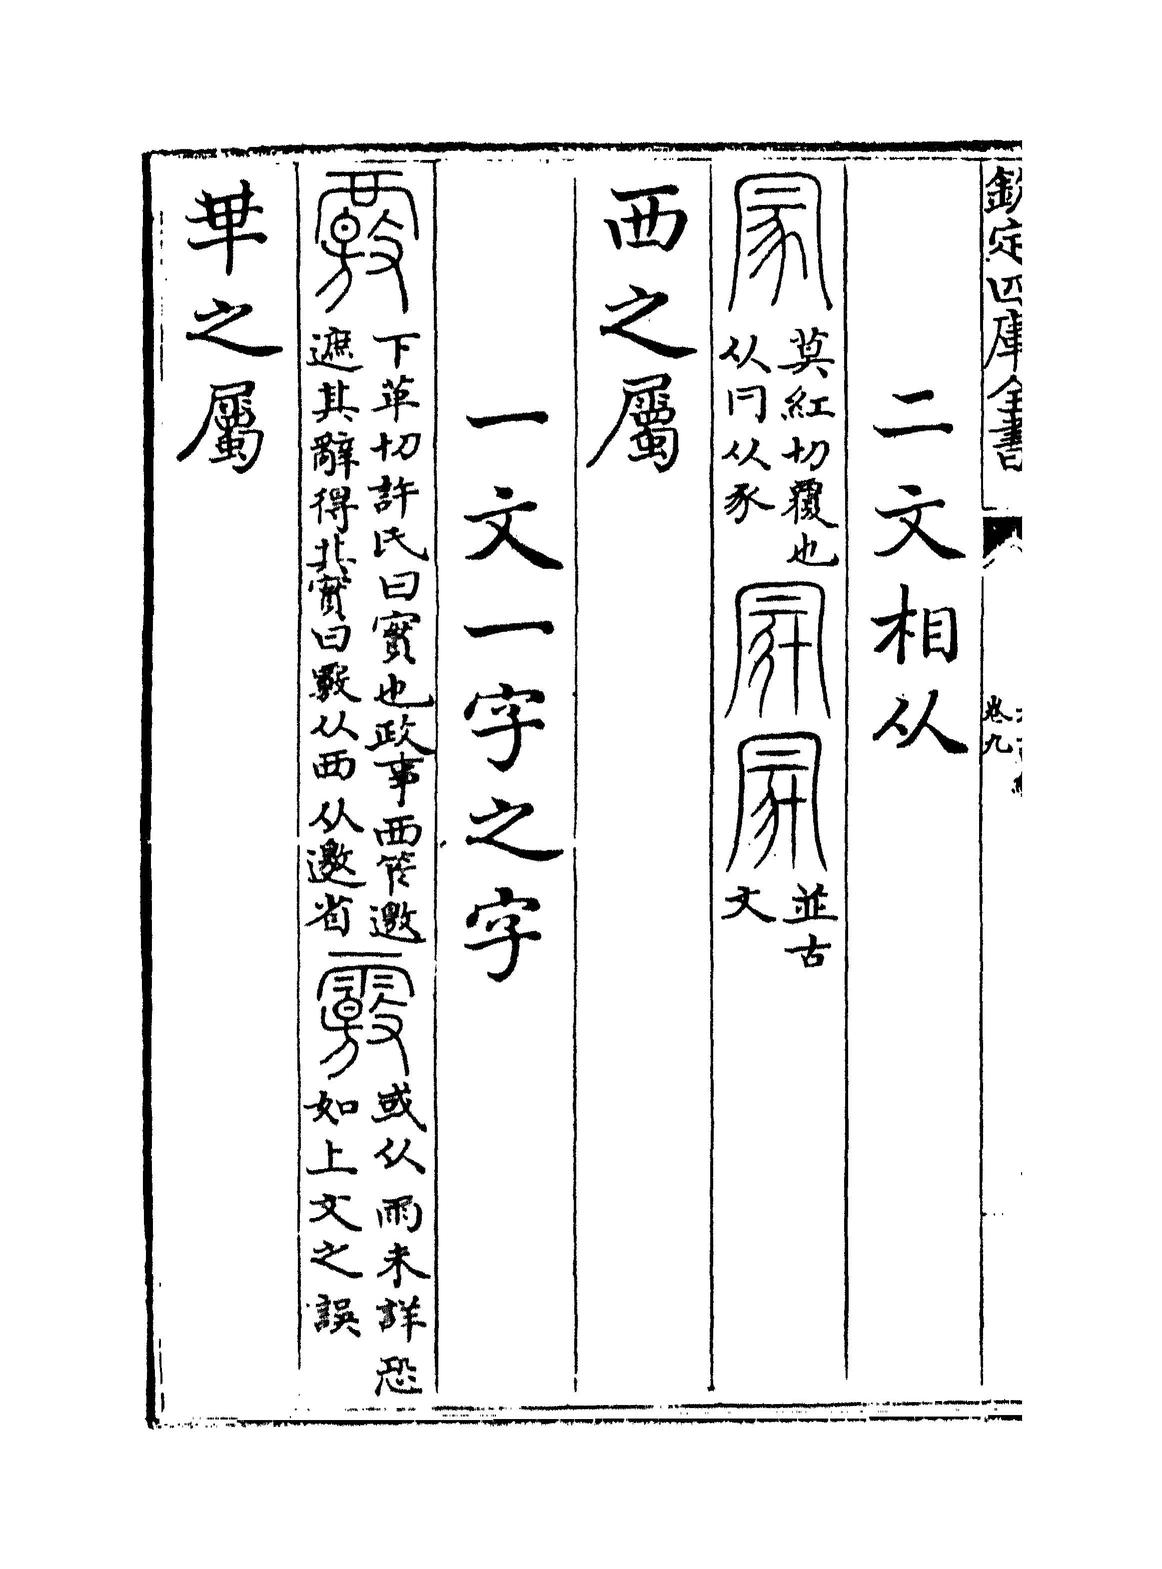 欽定四庫全書
卷九
二文相从
莫紅切覆也
从冃从豕
並古
文
西之屬
一文一字之字
下革切許氏曰實也政事西笮邀
遮其辭得其實曰覈从西从邀省
或从雨未詳恐
如上文之誤
𠦒之屬